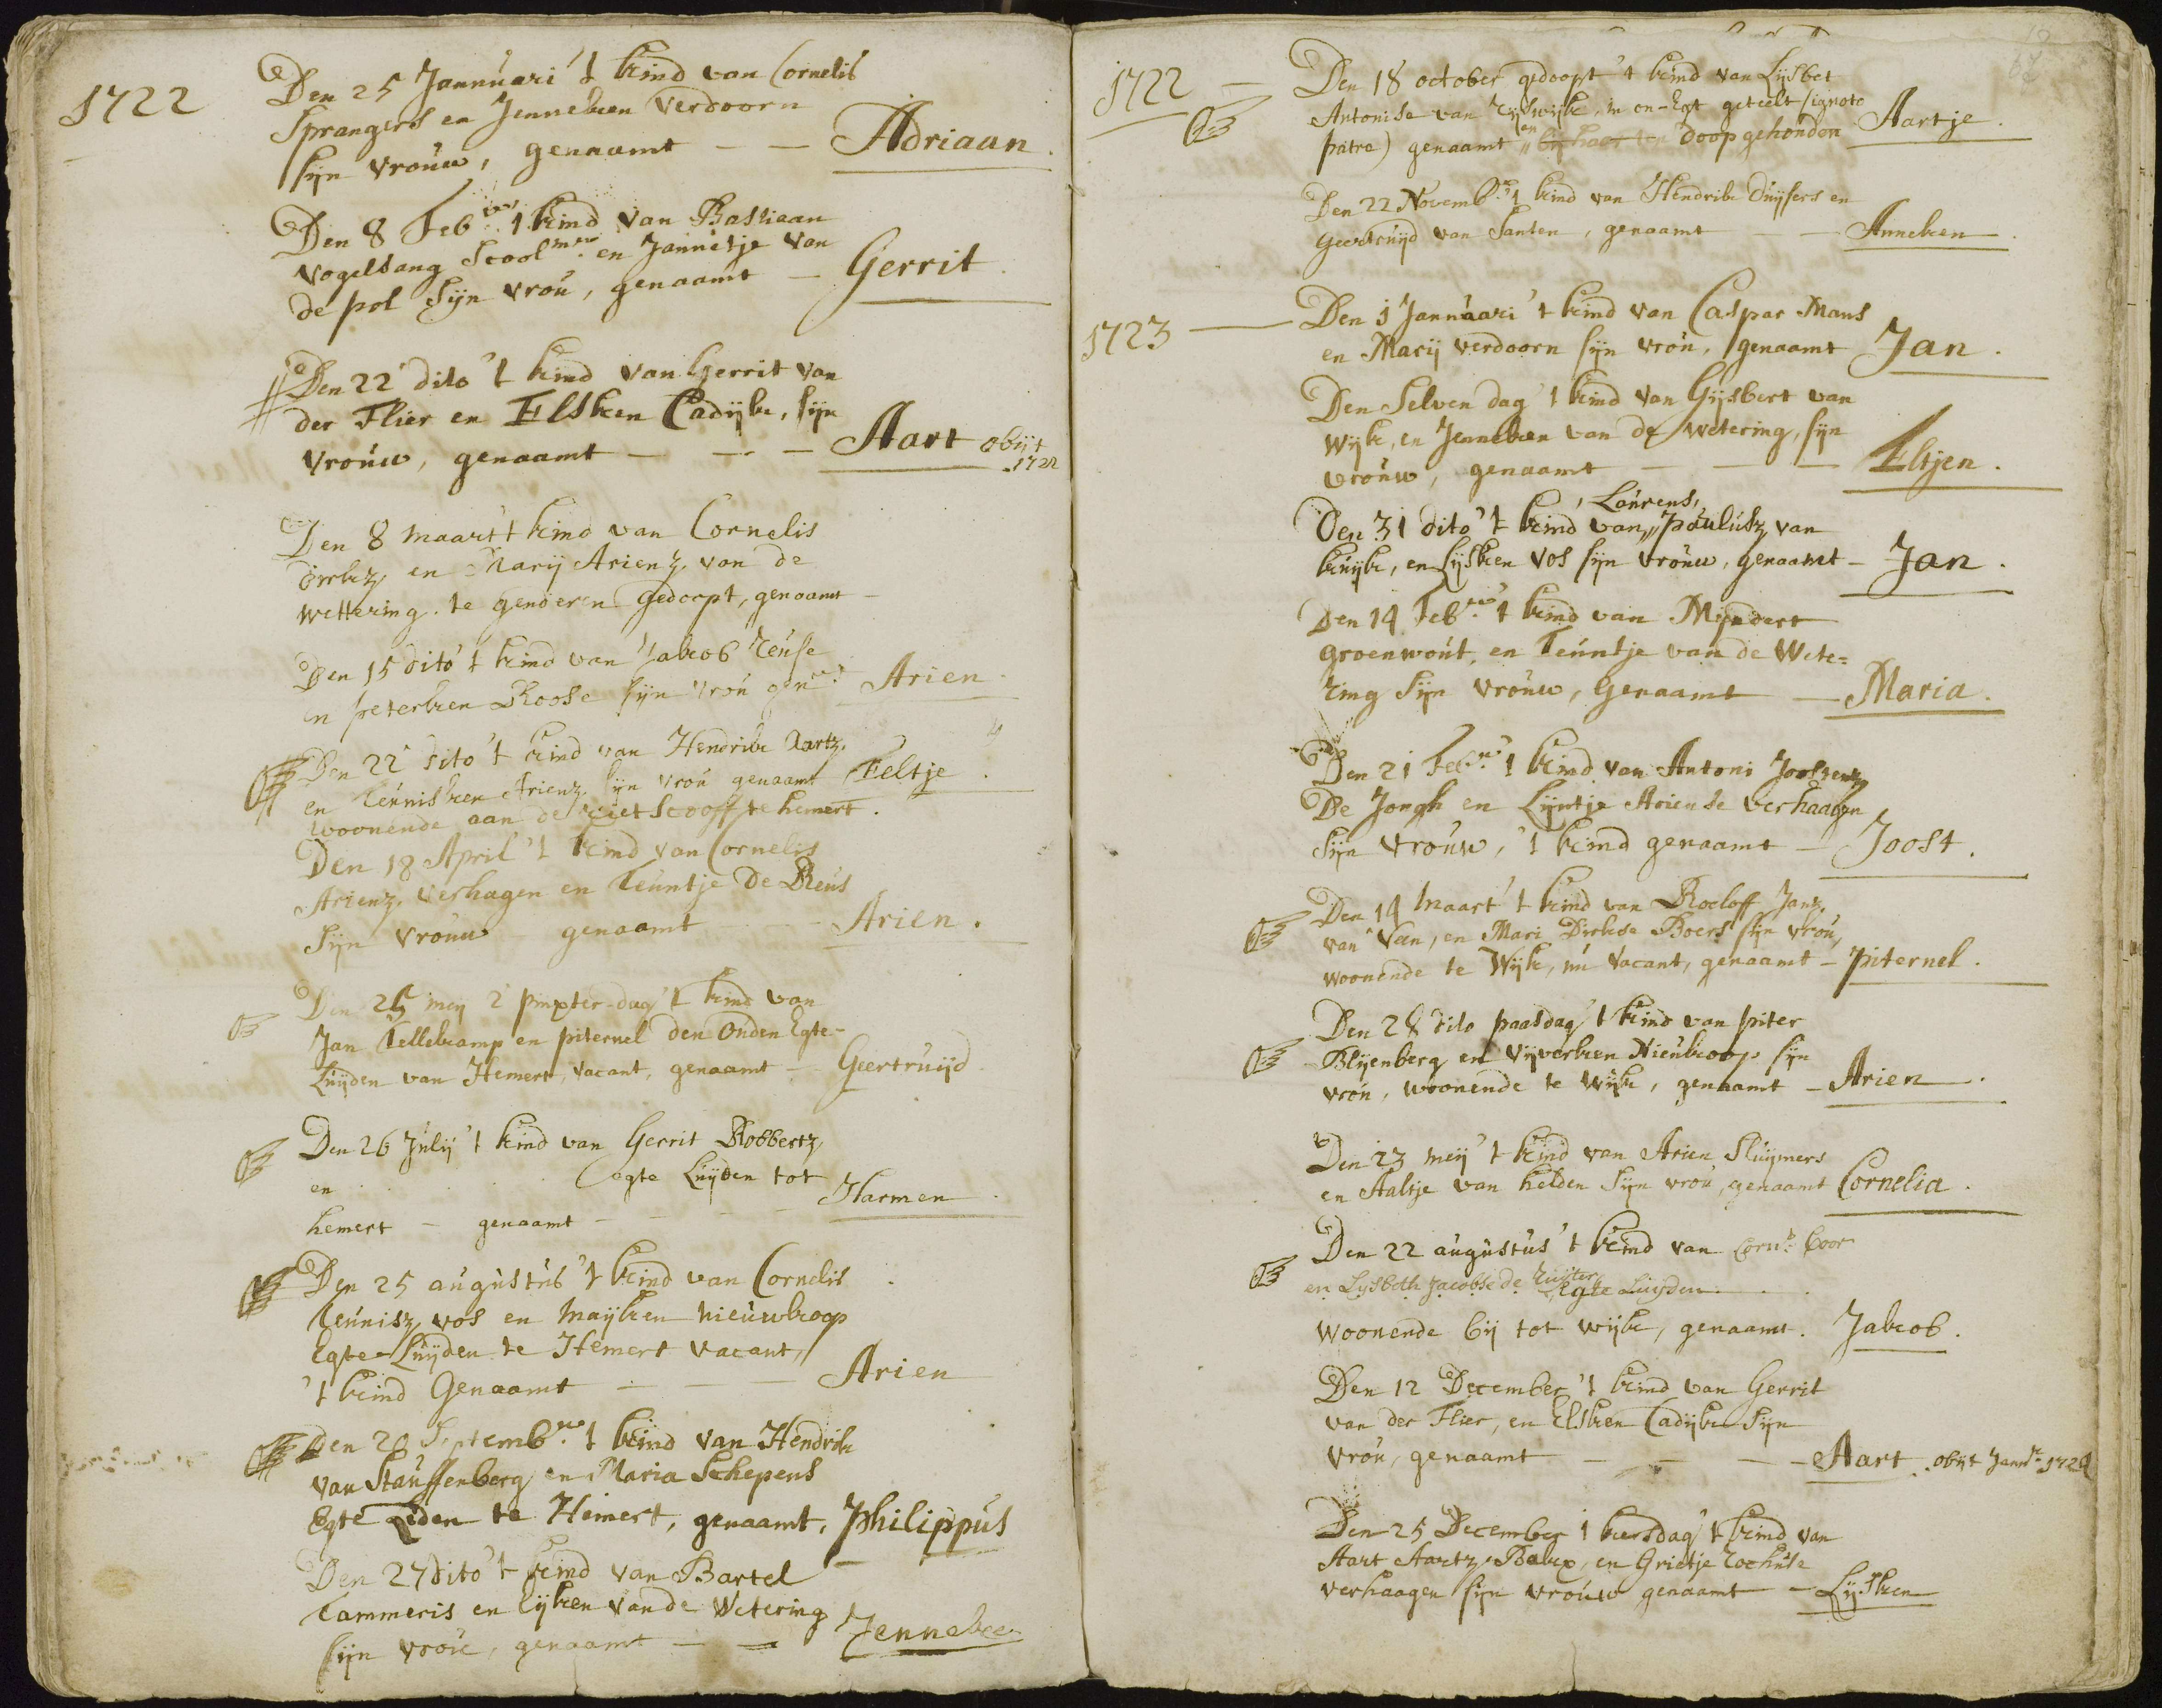 1722
Den 25 Jannúari 't kind van Cornelis
Sprangers en Jenneken Verdoorn
sijn vroúw, genaamt — — Adriaan.
Den 8 Febr 't kind van Bastiaan
Vogelsang Scoolmr en Jannetje van
de pol Sijn vroú, genaamt — Gerrit
Den 22 dito 't kind van Gerrit van
der Flier en Elsken Cadijk, sijn
Vroúw, genaamt — — — Aart obijt
1722
Den 8 maart 't kind van Cornelis
en Marij Arienz. van de
Wettering. te genderen gedoopt, genaamt —
Den 15 dito 't kind van Jakob Reúse
en peterken Roose sijn vroú gent Arien
Den 22 dito 't kind van Hendrik Aartz.
en Teúnisken Arienz. sijn vroú genaamt Eeltje.
woonende aan de rietscooff te hemert.
Den 18 April 't kind van Cornelis
Arienz. Verhagen en Teúntje De Reús
Sijn Vroúw — genaamt — — Arien.
Den 25 meij 2 pinxter-dag 't kind van
Jan Tellekamp en piternel den Oúden Egte-
Lúijden van Hemert, vacant, genaamt — Geertruijd
Den 26 Júlij 't kind van Gerrit Robbertz
en . . . . egte Lúijden tot
hemert — genaamt — — — Harmen.
Den 25 aúgústús 't kind van Cornelis
Teúnisz vos en Maijken nieúwkoop
Egte-Lúijden te Hemert vacant,
't kind Genaamt — — — Arien
Den 20 Septembr 't kind van Hendrik
van Staúffenberg en Maria Schepens
Egte Liden te Hemert, genaamt, Philippús
Den 27 dito 't kind van Bartel
Tammeris en Eijken van de Wetering
sijn vroú, genaamt — — Jenneken
1722 —
Den 18 october gedoopt 't kind van Lijsbet
Antonise van Rijswijk, in on-Egt geteelt (ignoto
patre) genaamt en bij haer ten doop gehouden Aartje.
Den 22 Novembr 't kind van Hendrik Dúijsers en
Geertrúijd van Santen, genaamt — — Anneken.
1723 —
Den 1 Jannúari 't kind van Caspar Mans
en Marij verdoorn sijn vroú, genaamt Jan.
Den Selven dag 't kind van Gijsbert van
Wijk, en Jenneken van de Wetering, sijn
vroúw, genaamt — — — Eltjen.
Loúrens,
Den 31 dito 't kind van,, Paúlúsz van
kúijk, en Lijsken Vos sijn vroúw, genaamt — Jan.
Den 14 Febr 't kind van Mijndert
groenwoút, en Teúntje van de Wete=
ring Sijn Vroúw, Genaamt — Maria.
Den 21 Febr 't kind van Antoni Joostenz
De Jongh en Lijntje Ariense verhaagen
Sijn Vroúw, 't kind genaamt — Joost.
Den 14 Maart 't kind van Roeloff Janz.
van Veen, en Mari Dirkse Boers sijn vroú,
woonende te Wijk, nú vacant, genaamt — piternel.
Den 28 dito paasdag 't kind van piter
Blijenberg en Vijverken Nieúkoop sijn
vroú, woonende te Wijk, genaamt — Arien.
Den 23 meij 't kind van Arien Sluijmers
en Aaltje van helden Sijn vroú, genaamt Cornelia.
Den 22 aúgústús 't kind van Corns Coor
en Lijsbeth Jacobse de Rúijter Egte Luijden
Woonende bij tot wijk, genaamt. Jakob.
Den 12 December 't kind van Gerrit
van der Flier, en Elsken Cadijk Sijn
Vroú, genaamt — — — Aart. obijt Jannr 1724
Den 25 December 1 kersdag 't kind van
Aart Aartz Bakx, en Grietje Rochúse
verhaagen sijn vroúw genaamt — Lijsken